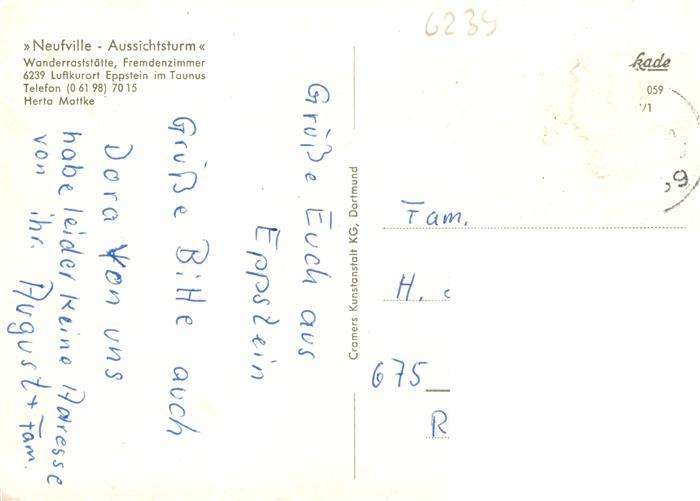 6239
»Neufville - Aussichtsturm«
Wanderraststätte, Fremdenzimmer
6239 Luftkurort Eppstein im Taunus
Telefon (0 61 98) 70 15
Herta Mattke
Grüße Euch aus
Eppstein
Grüße Bitte auch
Dora Von uns
habe leider keine Adresse
von ihr. August + Fam.
Cramers Kunstanstalt KG, Dortmund
kade
059
V1
Fam.
H.
675
R